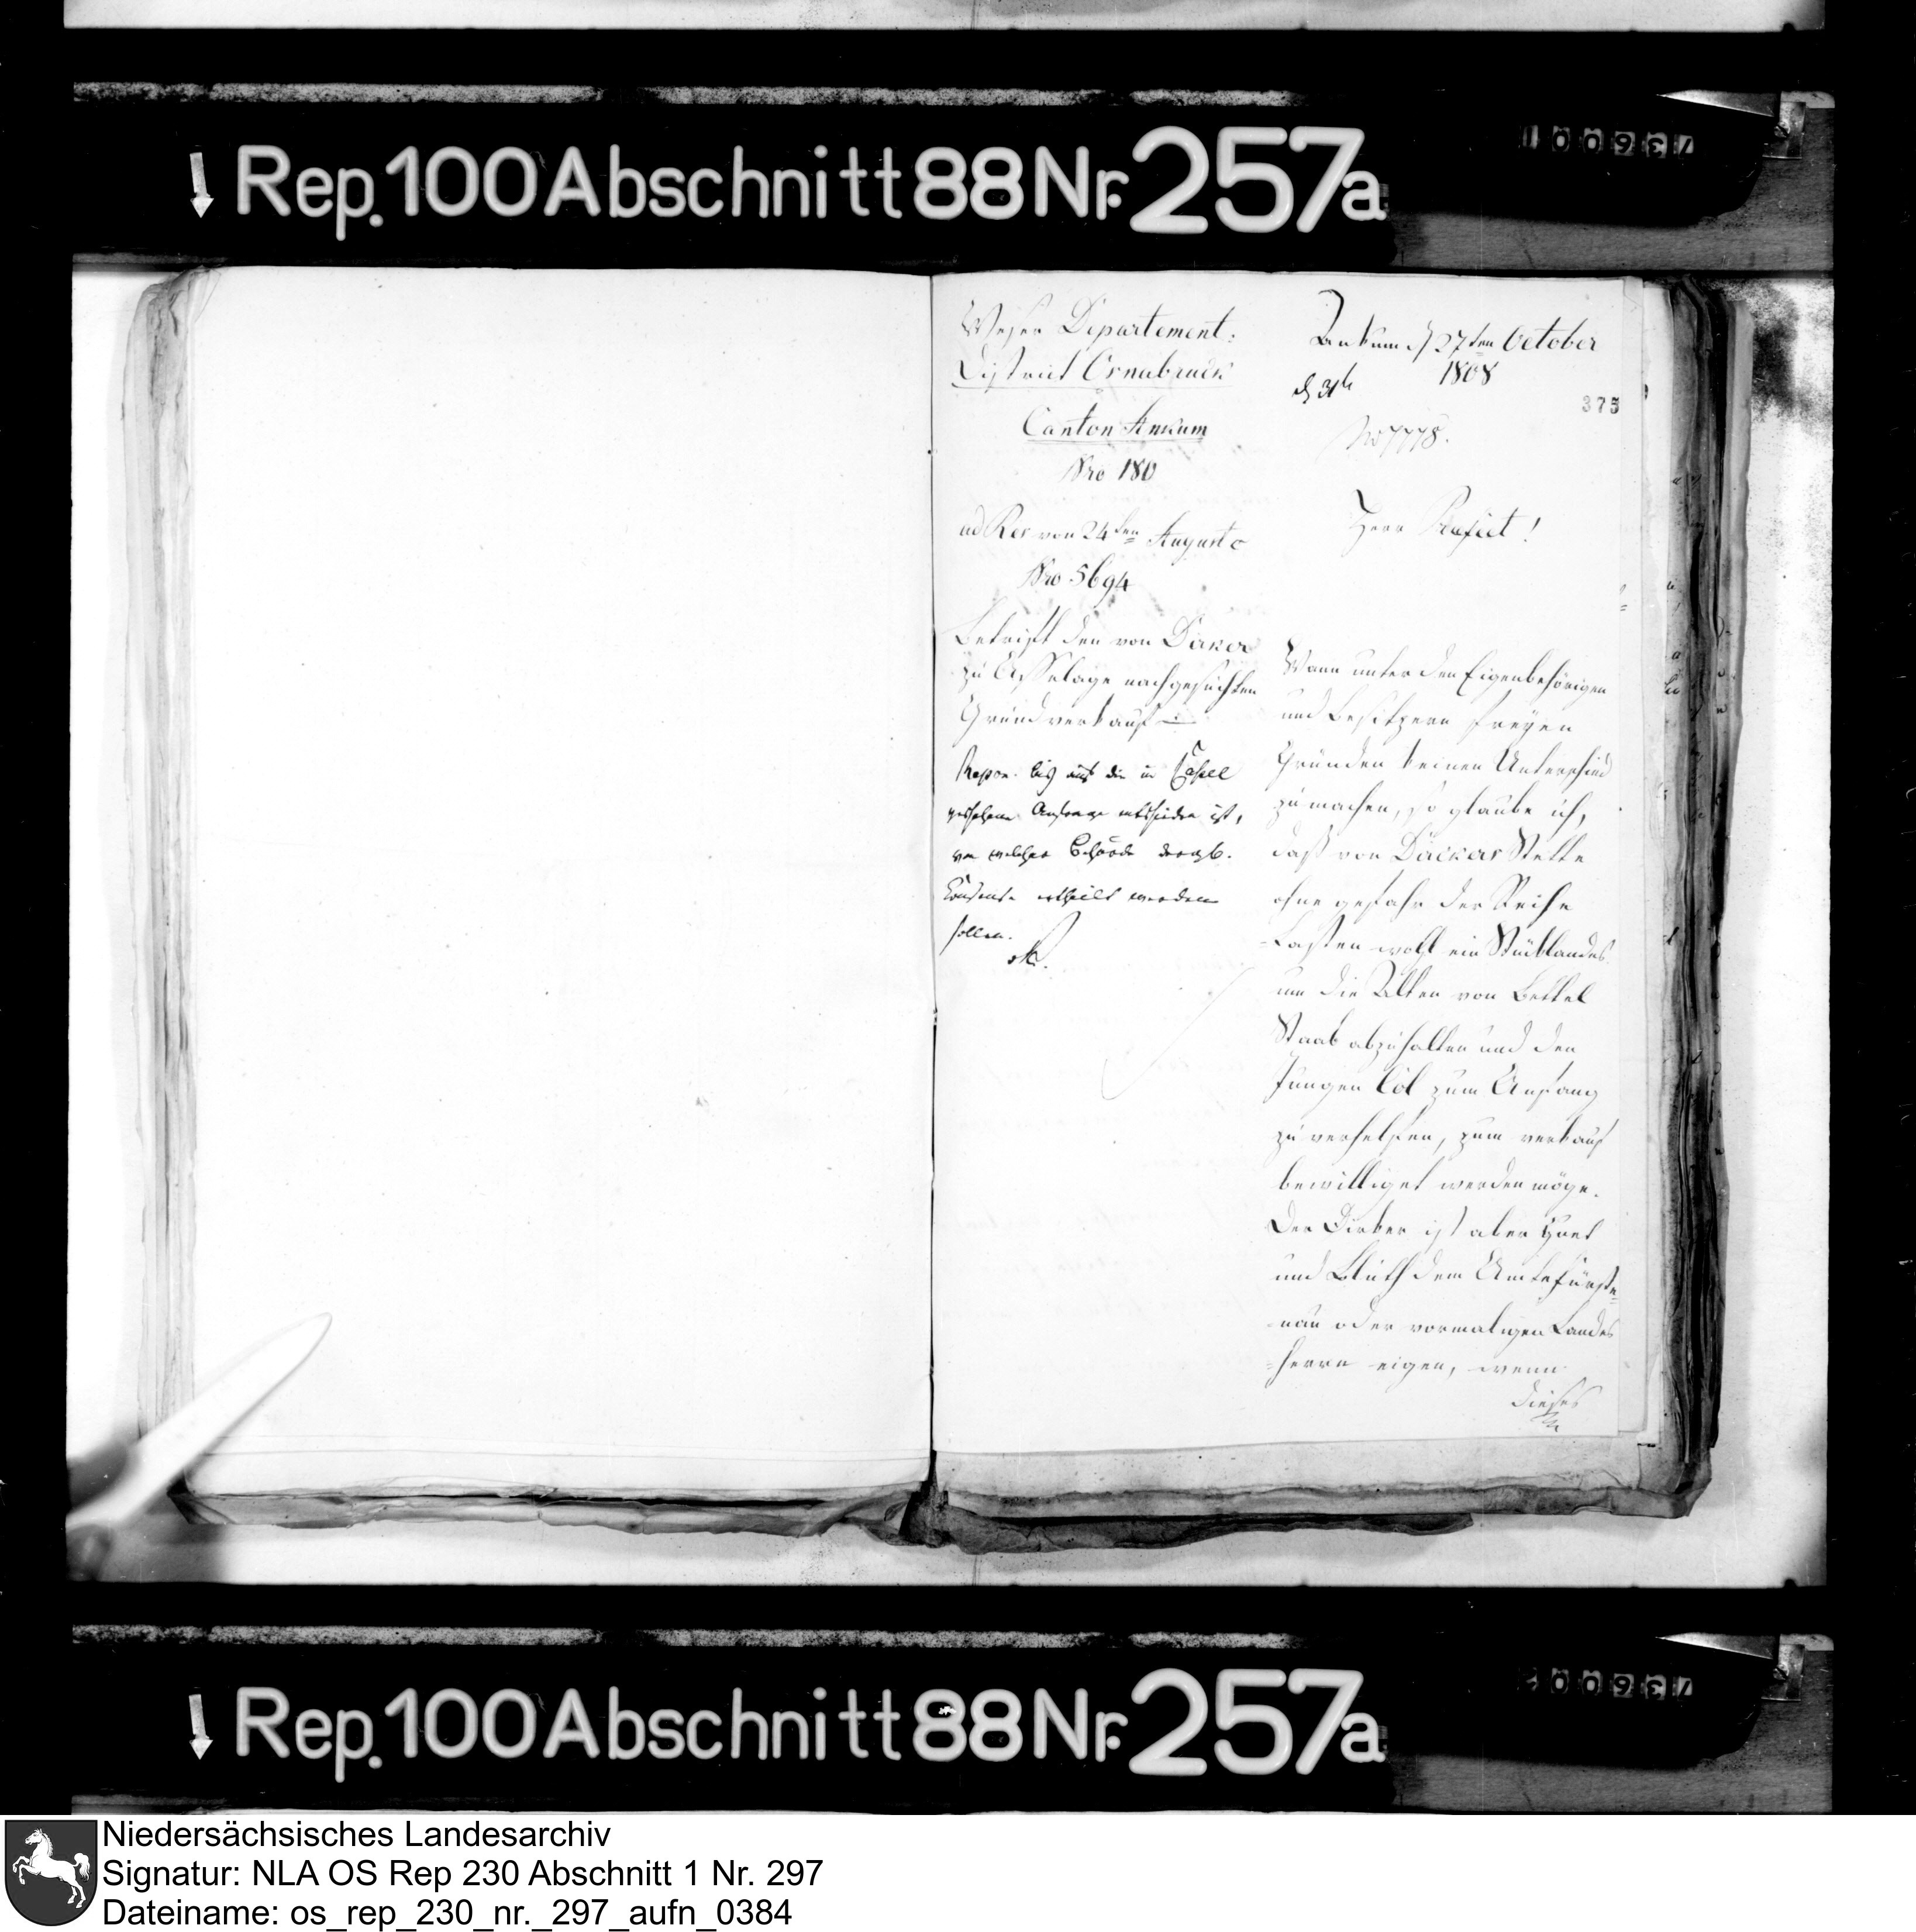 Rep. 100 Abschnitt 88 Nr. 257a
Weser Departement:
District Osnabruck
Canton Ankum
Nro 180
ad Res von 24ten Augusto
Nro 5694
Betrift den von Dirker
zu Asselage nachgesuchten
Grundverkauf
Repon. bis auf die in Cassel
geschehene Anfrage entschieden ist,
von welcher Behörde dergl.
Consense ertheilt werden
sollen.
Ankum d 27ten October
1808
375
No 7778.
Herr Präfect!
Wann unter den Eigenbehörigen
und Besitzern freyen
Gründen keinen Unterschied
zu machen, so glaube ich,
daß von Däckers Stelle
ohne gefahr der Reihe
Lasten wohl ein Stück Landes
um die Alten von Bettel
Staab abzuhalten und den
Jungen Col zum Anfang
zu verhelfen, zum verkauf
bewilliget werden möge.
Der Dirker ist aber Guet
und Bluth dem Amte Fürste=
nau oder vormaligen Landes
=herrn eigen, wenn
dieses
Rep. 100 Abschnitt 88 Nr. 257a
Niedersächsisches Landesarchiv
Signatur: NLA OS Rep 230 Abschnitt 1 Nr. 297
Dateiname: os_rep_230_nr._297_aufn_0384